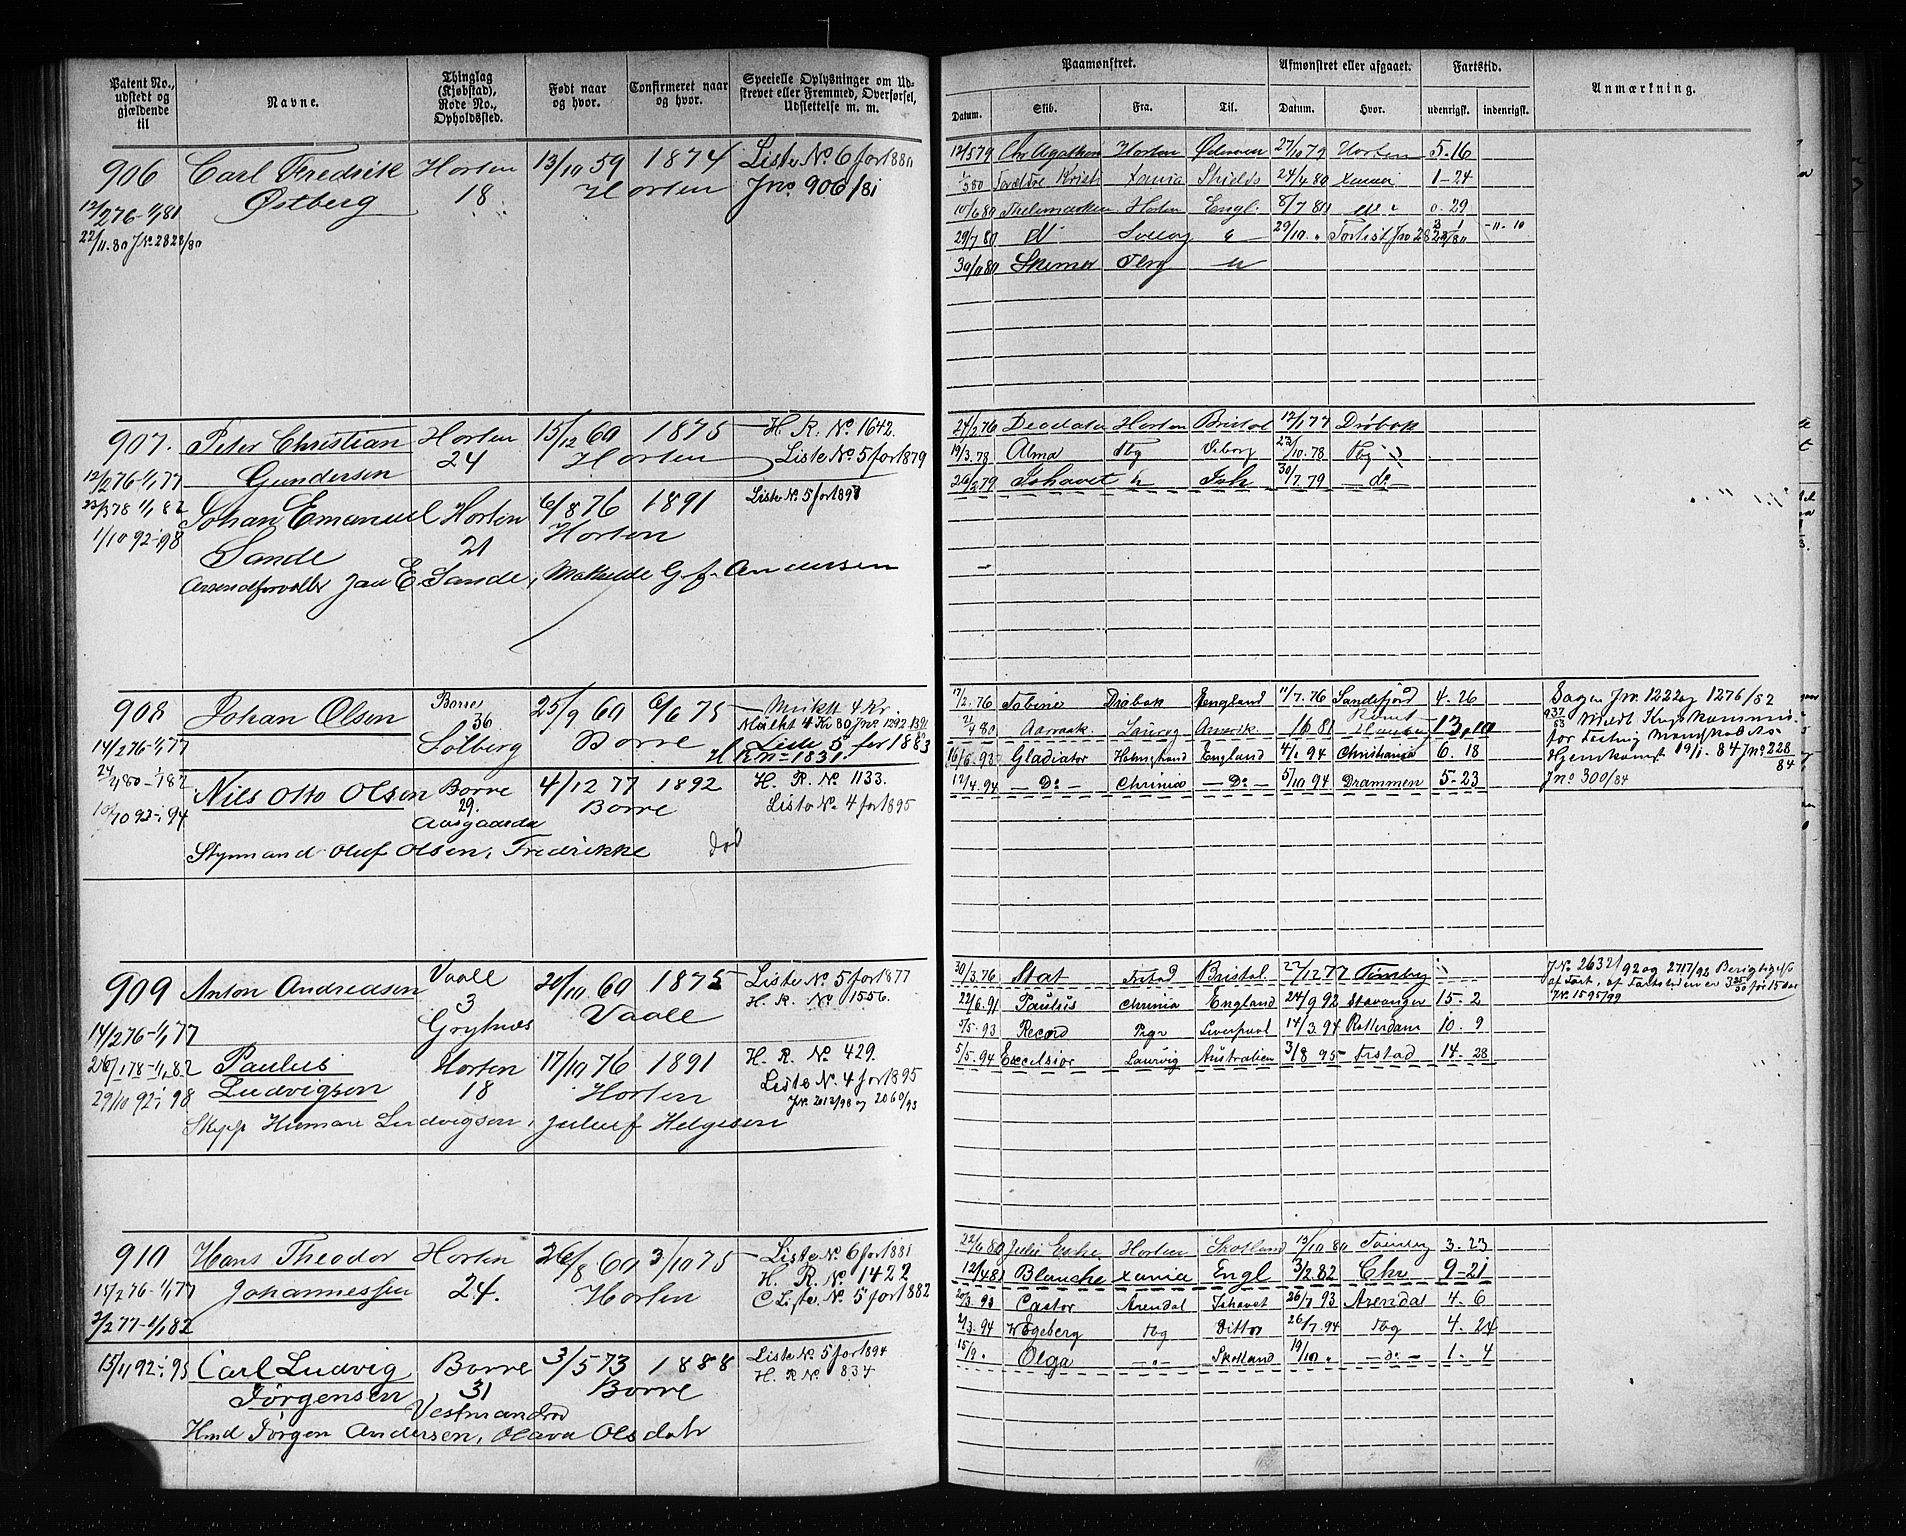 Patent No., udstedt og gjældende til
Navne.
Thinglag (Kjøbstad), Rode No., Opholdssted.
Født naar og hvor.
Confirmeret naar og hvor.
Specielle Oplysninger om Udstrevet eller Fremmed, Overførsel, Udslettelse m. m.
Paamønstret.
Afmønstret eller afgaaet.
Fartstid.
Anmærkning.
Datum.
Skib.
Fra.
Til.
Datum.
Hvor.
udenrigsk.
indenrigsk.
906 Carl Fredrik Horten 13/10 59 1874 Liste No 6 for 1880
Østberg 18 Horten Jno 906/81
12/2 76-1/1 81
22/11.80 JNo 2828/80
12/5 79 Chr Agathon Horten 27/10 79 Horten 5.16
Xania Shields 24/4 80 Xania 1-24
10/6 80 Thelemarken Horten Engl. 8/7 80 0.29
29/7 80 29/10
907. Peter Christian Horten 15/12 60 1875 H. R. No 1642.
Gundersen 24 Horten Liste No 5 for 1879
12/2 76-1/1 77
24/2 76 Deodata Horten Bristol 12/1 77 Drøbak
19/3.78 Alma Tbg Viborg 22/10.78 Tbg
Ishavet Ish 30/7 79 do
Johan Emanuel Horten 6/8 76 1891 Liste No 5 for 1898
Sande 21 Horten
1/10 92-98
Jan E. Sande, Mathilde G. f. Andersen
908 Johan Olsen Borre 25/9 60 6/6 75 Mulkt 4 Kr.
36 Mulkt 4 Kr 80 Jno 1292
Solberg Borre Liste 5 for 1883
14/2 76-1/1 77 H R No 1831.
17/2.76 Sabine Drøbak England 11/7.76 Sandefjord 4.26
Laurvig Amerik 13.10
16/6.93 Gladiator Holmestrand England 4/1 94 Christiania 6.18
12/4.94 - Do - Chrinia - Do - 5/10 94 Drammen 5-23
Sagen Jno 1222 og 1276/82
Jno 228/84
Jno 300/84
Niels Otto Olsen Borre 4/12 77 1892 H. R. No 1133.
29. Borre Liste No 4 for 1895
10/10 92-94 Aasgaarden
Styrmand Oluf Olsen, Fredrikke død
909 Anton Andreasen Vaale 20/10 60 1875 Liste No 5 for 1877
3 Vaale H. R. No 1556.
14/2 76-1/1 77 Grytnes
30/3.76 Stat Frstad Bristol 22/12 77 Tønsberg
22/6.91 Paulus Chrinia England 24/9 92 Stavanger 15-2
5/5.93 Record Liverpool 14/3 94 Rotterdam 10.9
5/5.94 Excelsior Laurvig Australien 3/8 95 Frstad 14-28
JNo 2632/92 og 2717/92
JNo 1595/99
26/1 78-1/1 82 Paulus Horten 17/10 76 1891 H. R. No 429.
Ludvigsen 18 Horten Liste No 4 for 1895
29/10 92-98
Skipp Ludvigsen, Helgesen
910 Hans Theodor Horten 26/8 60 3/10 75 Liste No 6 for 1881
Johannessen 24. Horten H. R. No 1422
15/2 76-1/1 77 Liste No 5 for 1882
2/2 77-1/1 82
22/6 80 Horten Skotland 13/10 80 3.23
12/4 81 Blanche Xania Engl 3/2 82 Chr 9-21
20/3.93 Castor Arendal Ishavet 26/7 93 Arendal 4.6
2/3.94 W Egeberg Tbg Ditto 26/7.94 Tbg 4.24
15/9 Olga Skotland 19/10 - do - 1.4
15/11 92-95 Carl Ludvig Borre 3/5 73 1888 Liste No 5 for 1894
Jørgensen 31 Borre H. R No 834
Vestmandrød
Hmd Jørgen Andersen, Olava Olsdatr